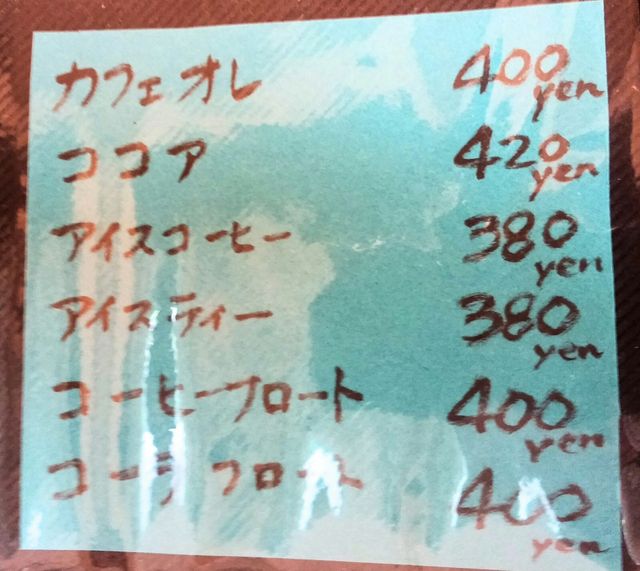 カフェオレ 400yen
ココア 420yen
アイスコーヒー 380yen
アイスティー 380yen
コーヒーフロート 400yen
コーラフロート 400yen